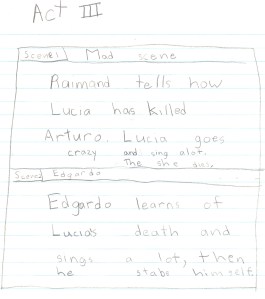 Act III
Scene 1 Mad scene
Raimand tells how
Lucia has killed
Arturo. Lucia goes
crazy and sing alot.
The she dies.
Scene Edgardo
Edgardo learns of
Lucia's death and
sings a lot, then
he stabs himself